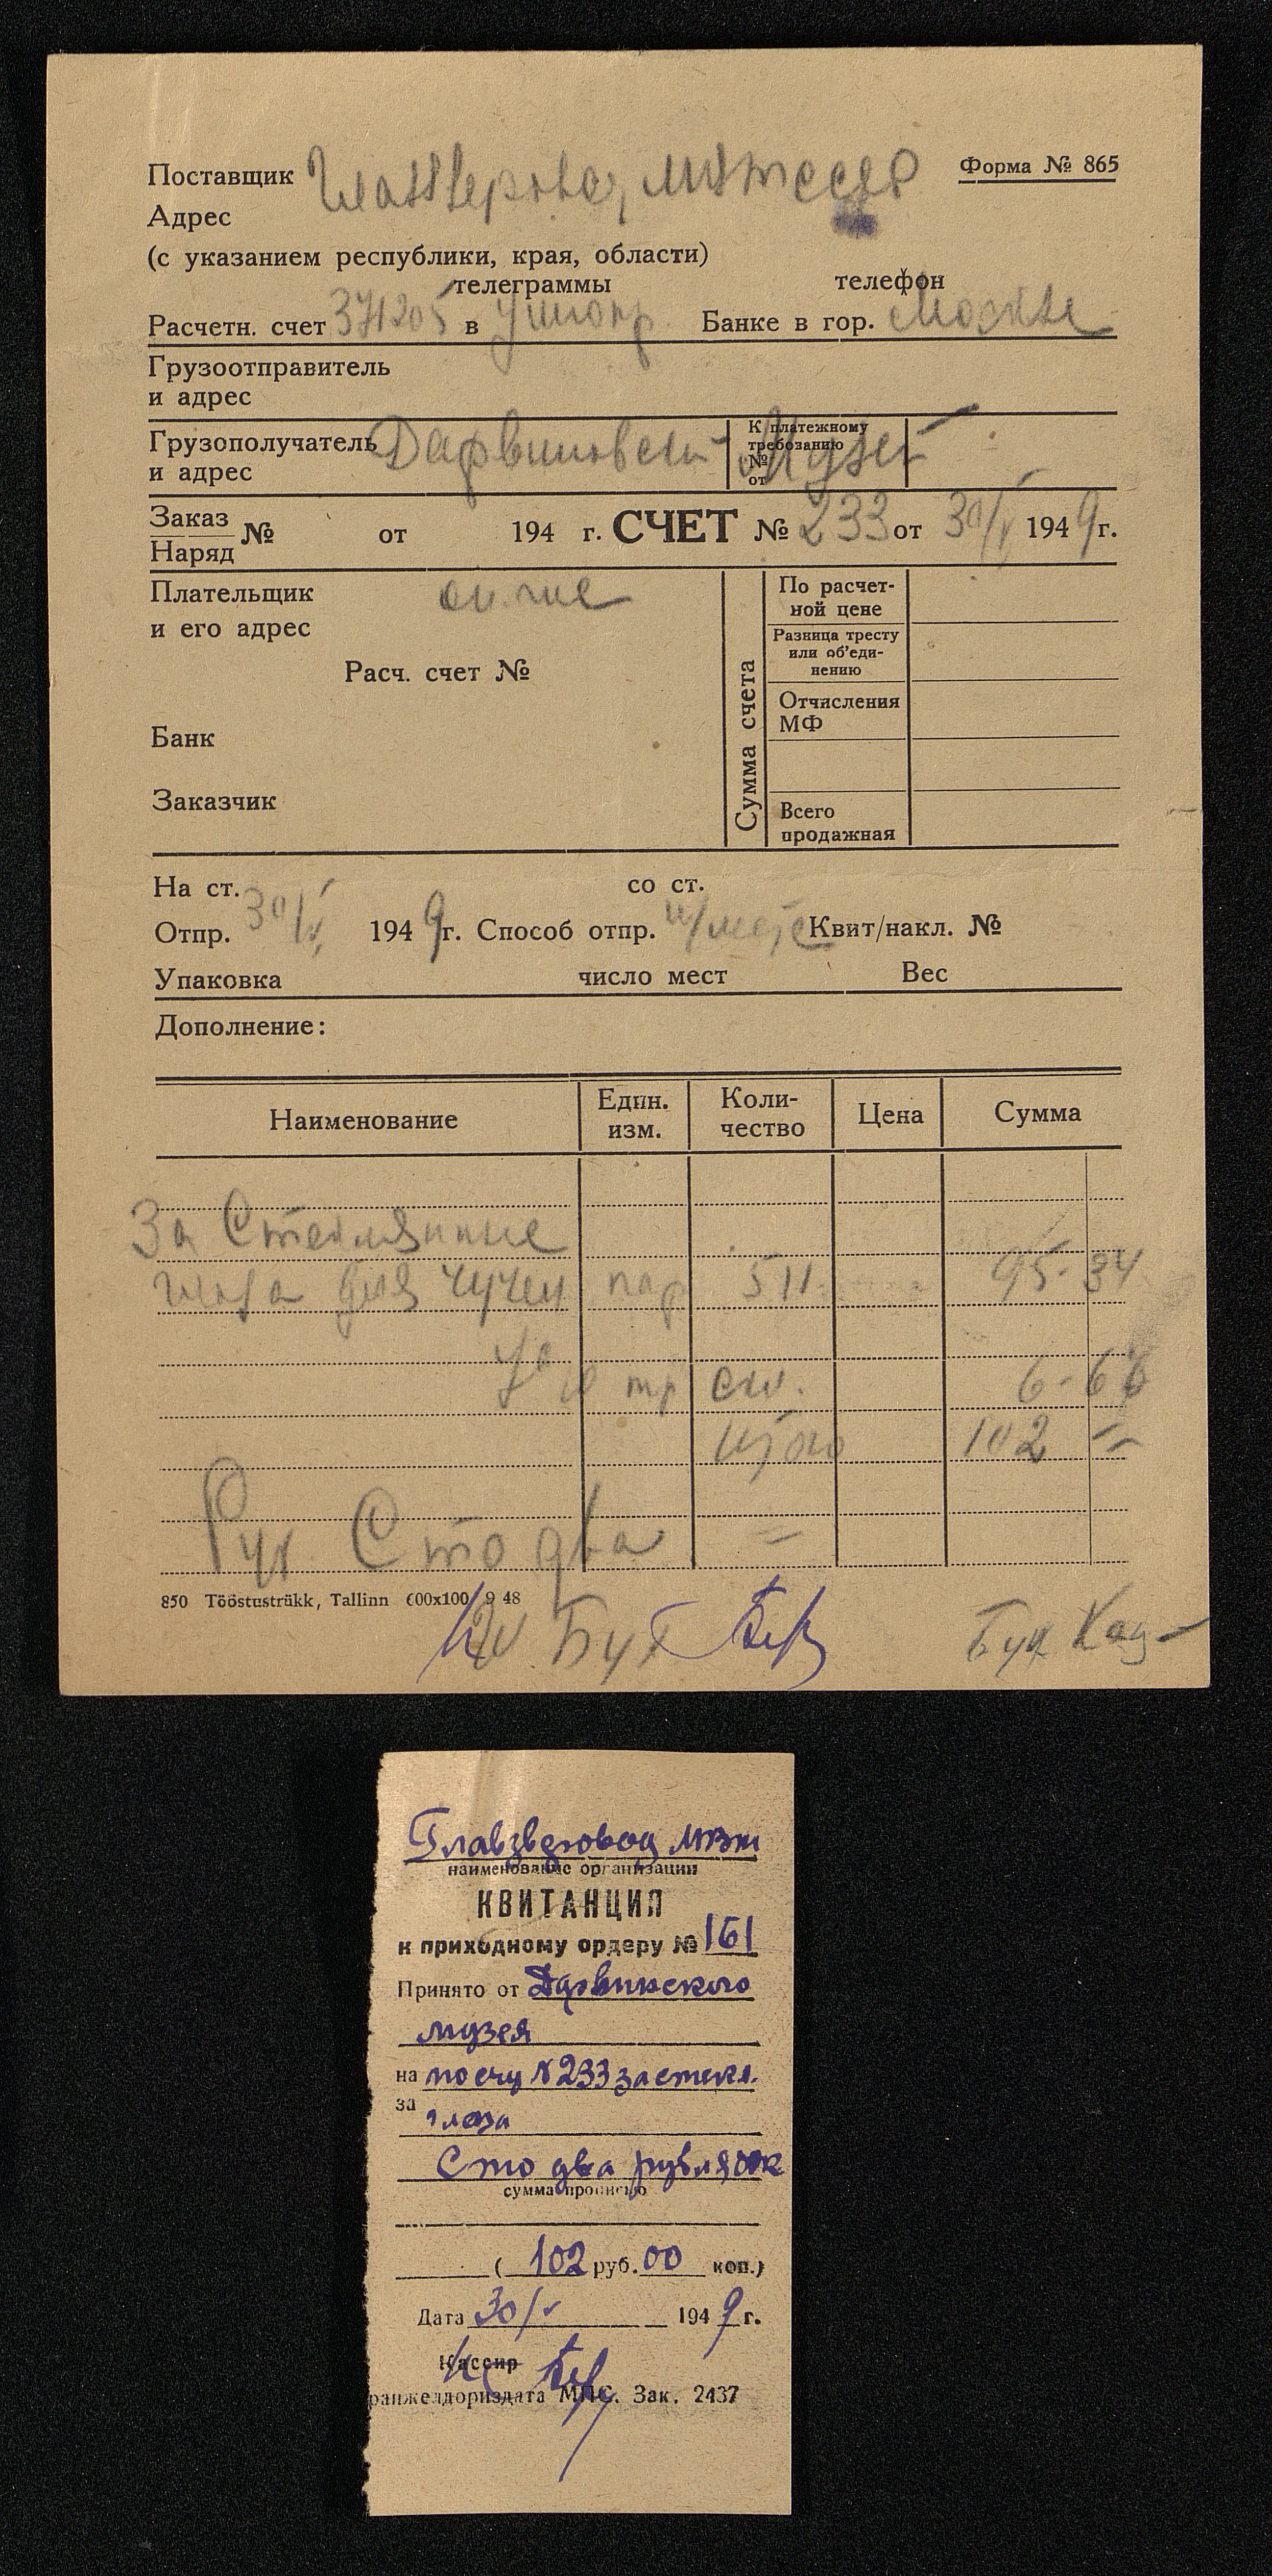 Поставщик
Форма № 865
Адрес
(с указанием республики, края, области)
телеграммы телефон
Расчетн. счет 371205 в Банке в гор. Москве
Грузоотправитель
и адрес
Грузополучатель Дарвиновский Музей
и адрес
К платежному
требованию
№
от
Заказ
Наряд № от 194 г. СЧЕТ № 233 от 30/V 1949 г.
Плательщик он же
и его адрес
Расч. счет №
Банк
Заказчик
Сумма счета
По расчет-
ной цене
Разница тресту
или об'еди-
нению
Отчисления
МФ
Всего
продажная
На ст. со ст.
Отпр. 30/V 1949 г. Способ отпр. Квит/накл. №
Упаковка число мест Вес
Дополнение:
Наименование Един. изм. Коли-чество Цена Сумма
За Стеклянные
глаза для чучел пар 511 95-34
6-66
Итого 102 =
Руб Сто два =
850 Tööstustrükk, Tallinn 600x100 9 48
Бух
Бух
наименование организации
КВИТАНЦИЯ
к приходному ордеру № 161
Принято от Дарвинского
музея
на по счу № 233 за стекл.
за глаза
Сто два рубля 00к
сумма прописью
( 102 руб. 00 коп.)
Дата 30/V 1949 г.
Кассир
ранжелдориздата МПС. Зак. 2437